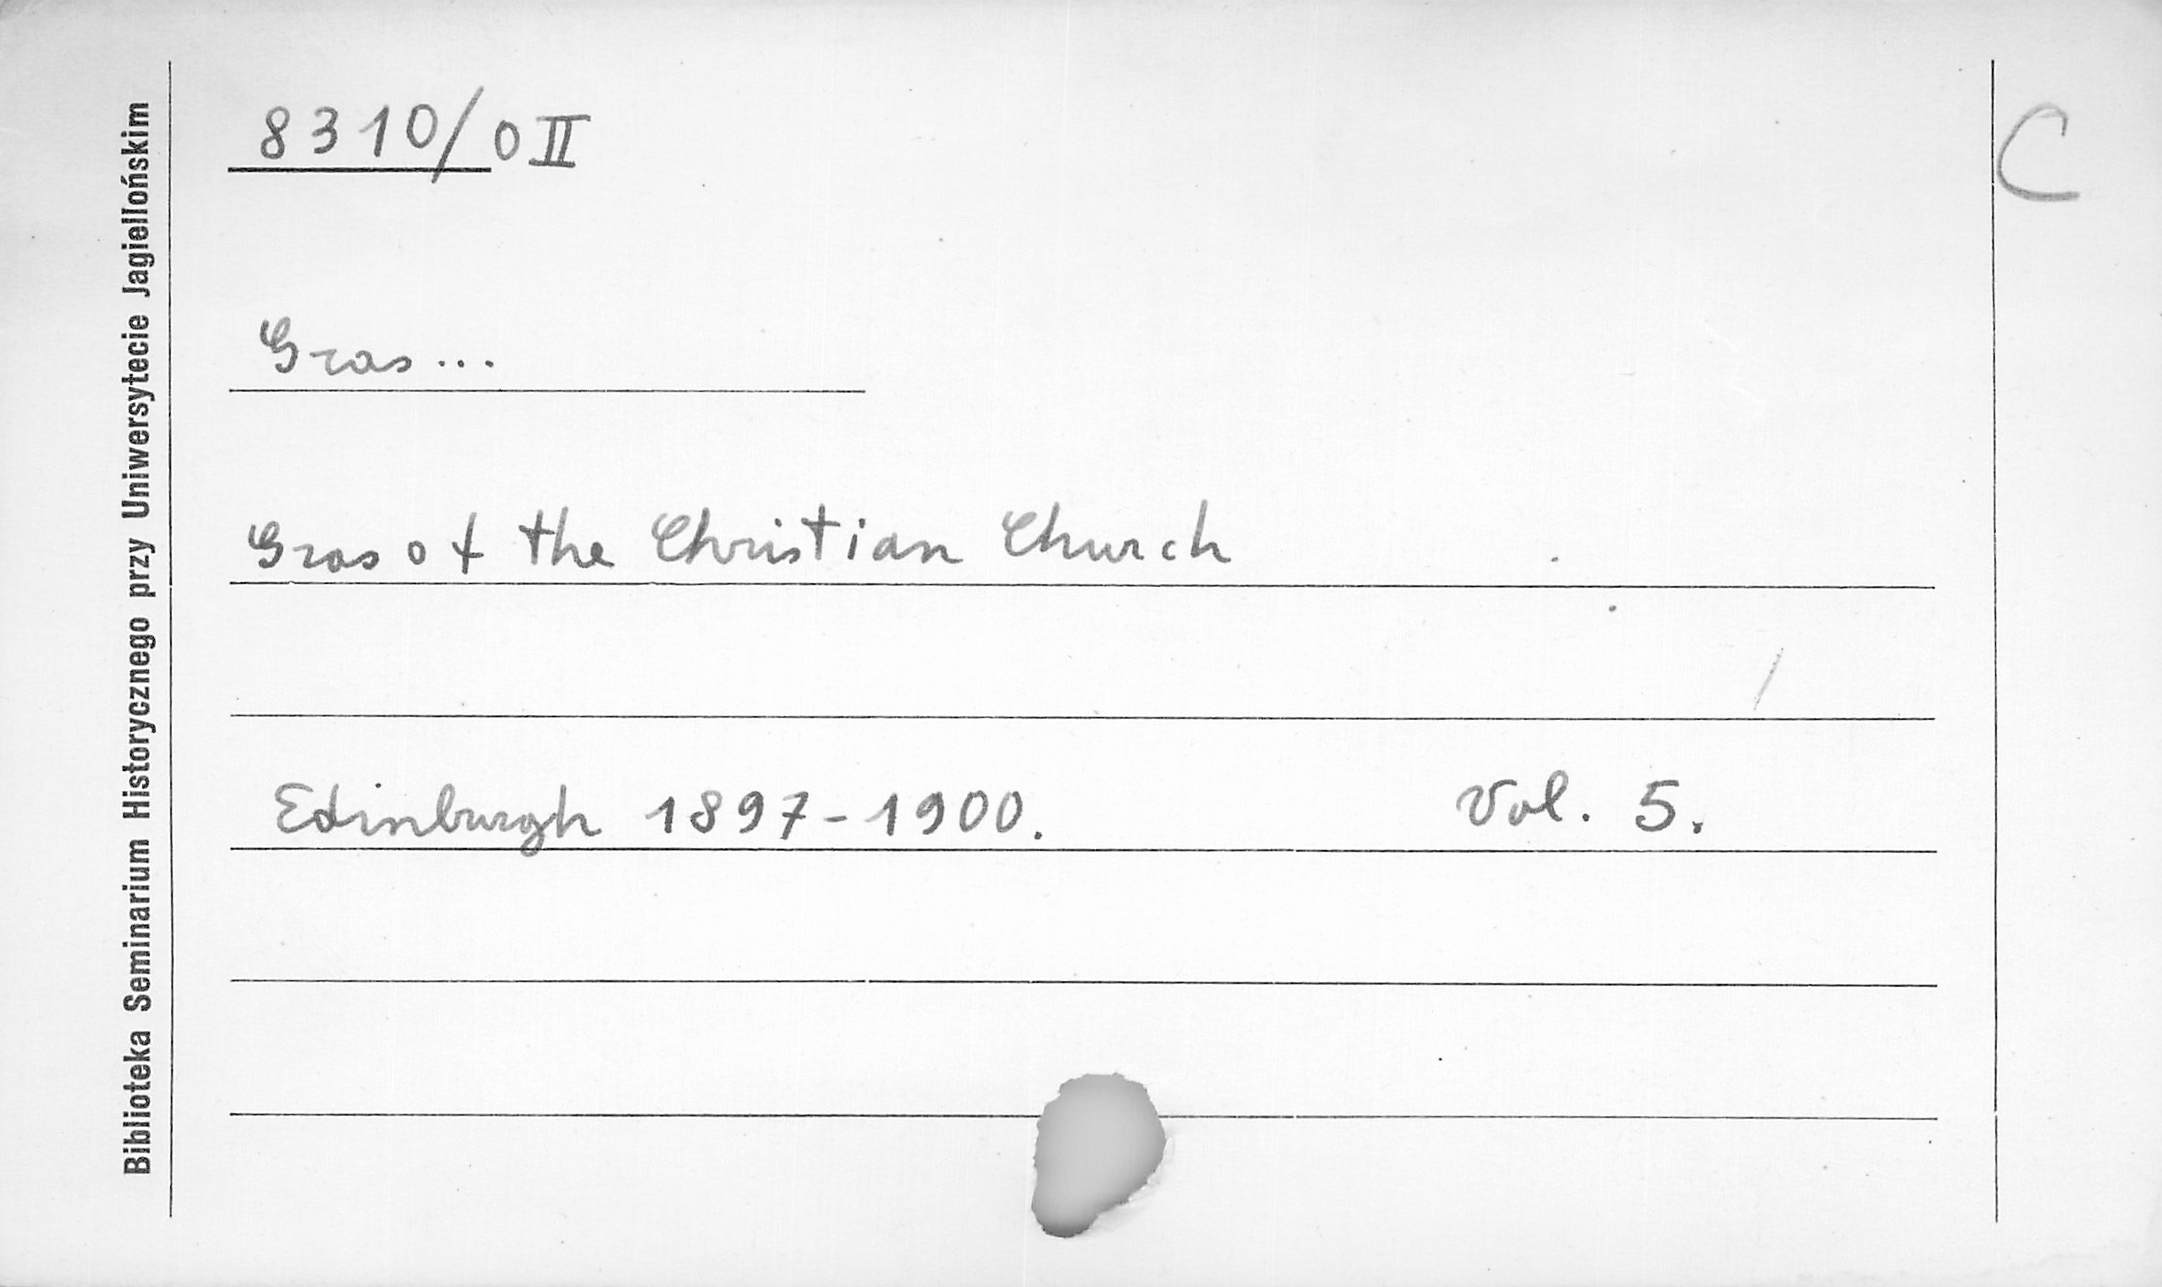 8310/0 II
C
Gras...
Gras of the Christian Church
Edinburgh 1897-1900. Vol. 5.
Biblioteka Seminarium Historycznego przy Uniwersytecie Jagiellońskim